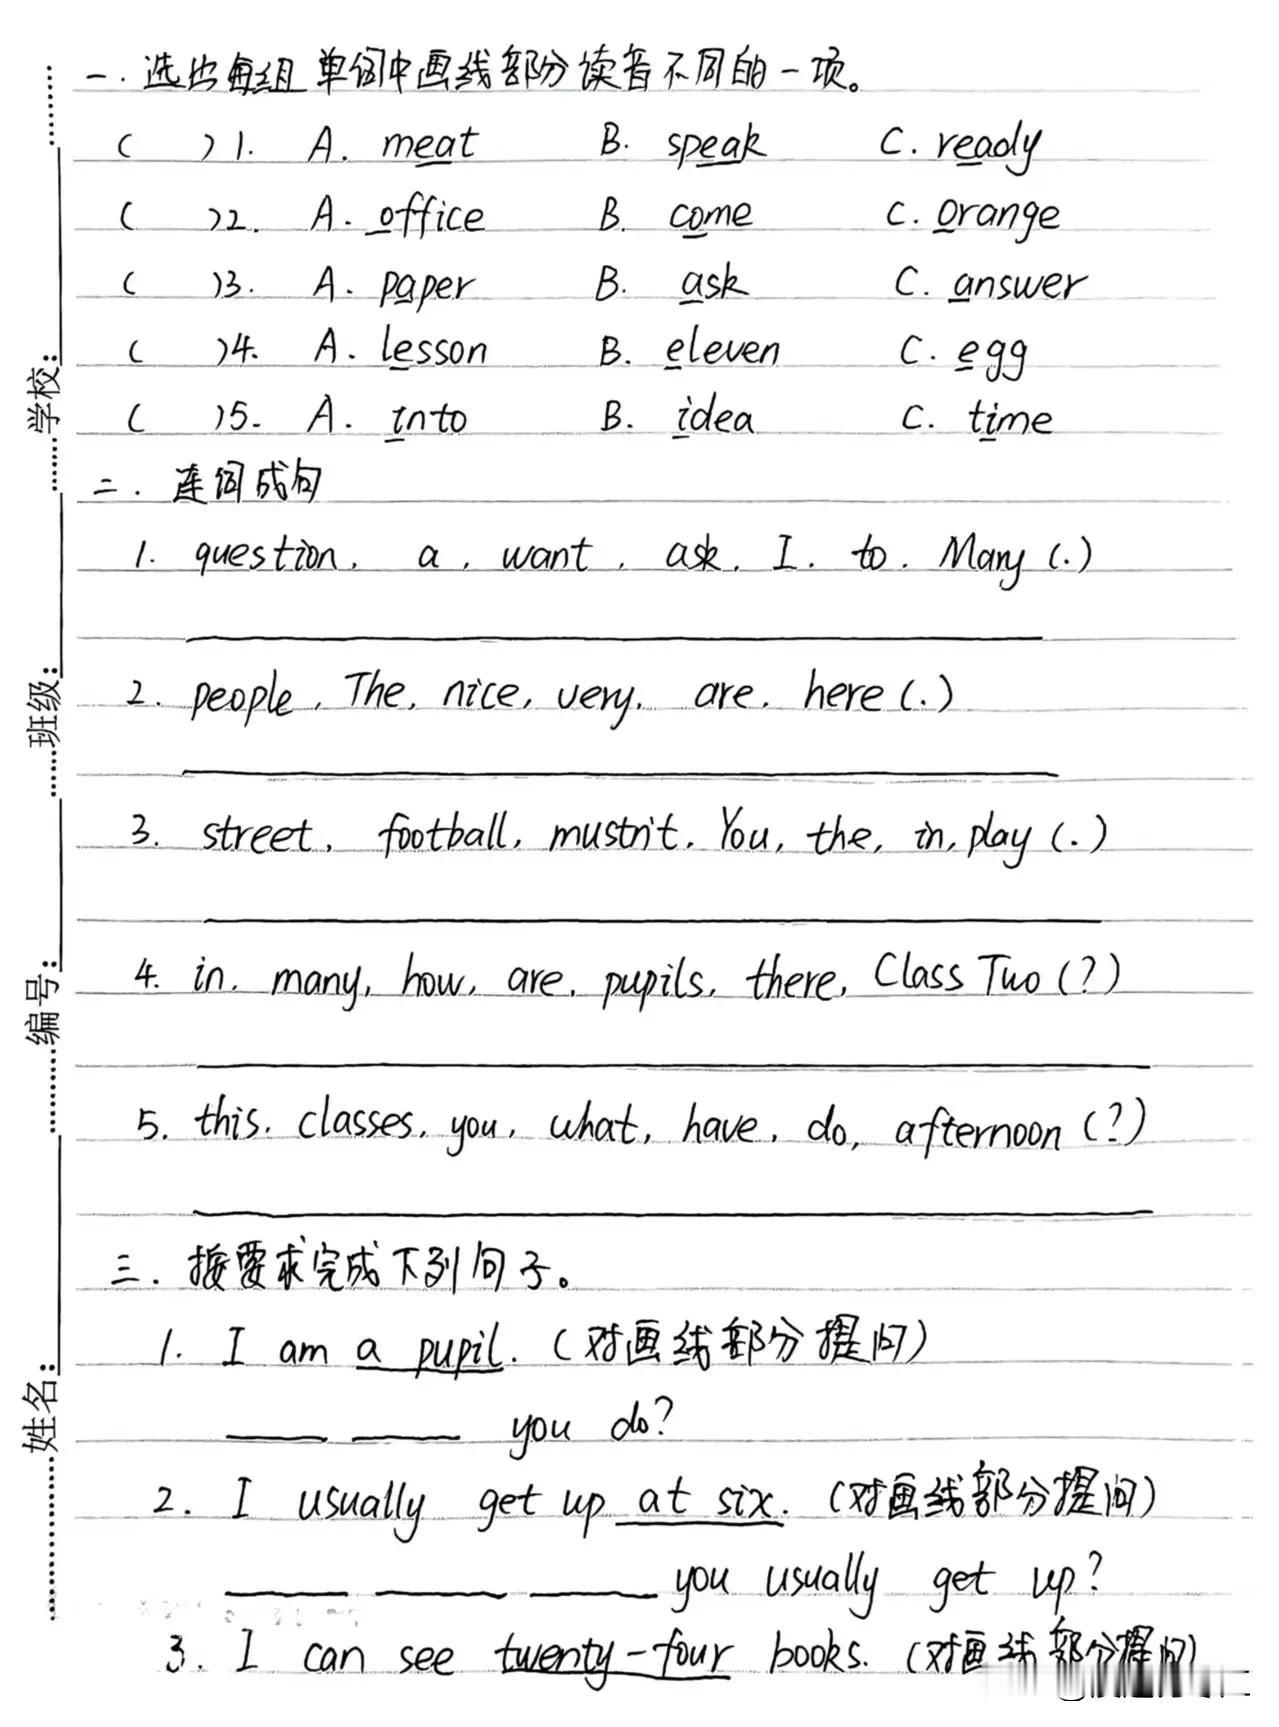 一.选出每组单词中画线部分读音不同的一项。
( )1. A. meat B. speak C. ready
( )2. A. office B. come C. orange
( )3. A. paper B. ask C. answer
( )4. A. lesson B. eleven C. egg
( )5. A. into B. idea C. time
二. 连词成句
1. question, a, want, ask, I, to, Mary (.)
2. people, The, nice, very, are, here (.)
3. street, football, mustn't, You, the, in, play (.)
4. in, many, how, are, pupils, there, Class Two (?)
5. this, classes, you, what, have, do, afternoon (?)
三. 按要求完成下列句子。
1. I am a pupil. (对画线部分提问)
____ ____ you do?
2. I usually get up at six. (对画线部分提问)
____ ____ ____ you usually get up?
3. I can see twenty-four books. (对画线部分提问)
学校:
班级:
编号:
姓名: